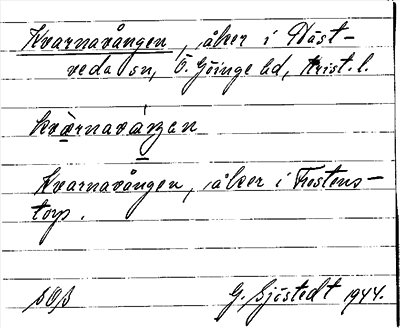 Kvarnavången, åker i Häst-
veda sn, Ö. Göinge hd, Krist. l.
Kvarnavången, åker i Frostens-
torp.
G. Sjöstedt 1944.